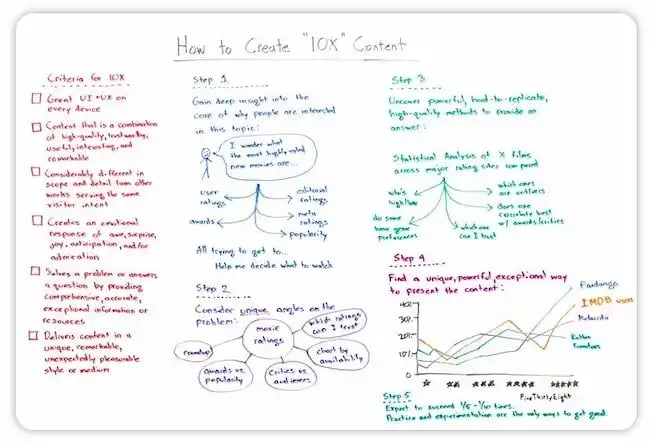 How to Create "10X" Content
Criteria for 10X
Great UI + UX on
every device
Content that is a combination
of high-quality, trustworthy,
useful, interesting, and
remarkable
Considerably different in
scope and detail from other
works serving the same
visitor intent
Creates an emotional
response of awe, surprise,
joy, anticipation, and/or
admiration
Solves a problem or answers
a question by providing
comprehensive, accurate,
exceptional information or
resources
Delivers content in a
unique, remarkable,
unexpectedly pleasurable
style or medium
Step 1
Gain deep insight into the
core of why people are interested
in this topic:
I wonder what
the most highly-rated
new movies are...
user
ratings
editorial
ratings
awards
meta
ratings
popularity
All trying to get...
Help me decide what to watch
Step 2
Consider unique angles on the
problem:
movie
ratings
which ratings
can I trust
roundup
chart by
availability
Awards vs.
popularity
Critics vs.
audiences
Step 3
Uncover powerful, hard-to-replicate,
high-quality methods to provide an
answer:
Statistical Analysis of X films
across major rating sites compared
who's
high/low
which ones
are outliers
do some
have genre
preferences
does one
correlate best
w/ awards/critics
which one
can I trust
Step 4
Find a unique, powerful, exceptional way
to present the content:
Fandango
IMDB users
Metacritic
Rotten
Tomatoes
40%
30%
20%
10%
0%
FiveThirtyEight
Step 5
Expect to succeed 1/5 - 1/10 times.
Practice and experimentation are the only ways to get good.